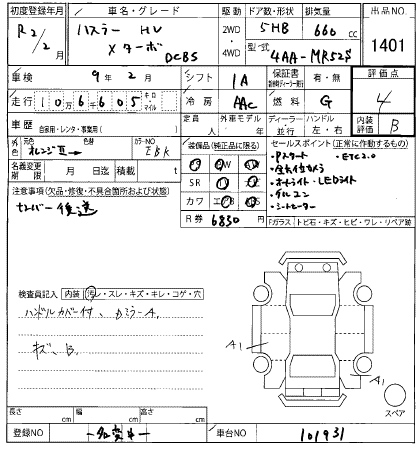 初度登録年月 車名・グレード 駆動 ドア数・形状 排気量 出品NO.
R2/2月 ハスラー HV 2WD・4WD 5HB 660cc 1401
Xターボ DCBS 型式 4AA-MR52S
車検 9年2月 シフト IA 保証書 有・無 評価点 4
走行 106605 キロ・マイル 冷房 AAC 燃料 G 内装 B
車歴 自家用・レンタ・事業用( ) 定員 人 外車モデル 年 ディーラー・並行 ハンドル 左・右
外色 元色 オレンジ 色替 カラーNO EBK
装備品(純正品に限る) セールスポイント(正常に作動するもの)
名義変更期限 月 日迄 積載 t
・Pスタート ・ETC2.0
・全方位カメラ
・オートライト・LEDライト
・クルコン
・シートヒーター
SR TV
カワ
R券 6830円
Fガラス トビ石・キズ・ヒビ・ワレ・リペア跡
注意事項(欠品・修復・不具合箇所および状態)
ナンバー後送
検査員記入 内装 汚レ・スレ・キズ・キレ・コゲ・穴
ハンドルカバー付、
キズ、B
A1
A1
スペア
長さ cm 幅 cm 高さ cm
登録NO 名変 車台NO 101931